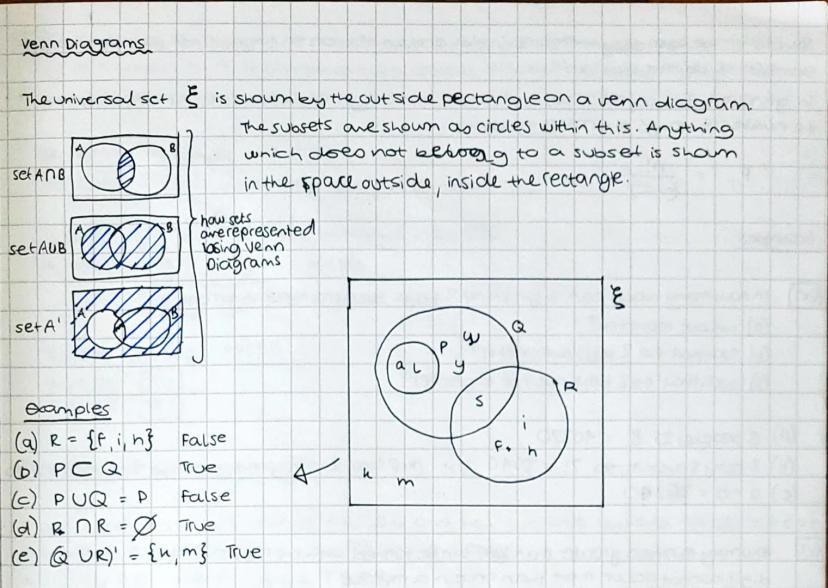 Venn Diagrams
The universal set ξ is shown by the outside rectangle on a venn diagram.
The subsets are shown as circles within this. Anything
which does not belong to a subset is shown
in the space outside, inside the rectangle.
set A∩B
A B
set A∪B
A B
set A'
A' B
how sets
are represented
using Venn
Diagrams
ξ
Q
P
a l
y
R
s
i
f. h
k
m
Examples
(a) R = {f, i, h} False
(b) P ⊂ Q True
(c) P ∪ Q = P False
(d) P ∩ R = ∅ True
(e) (Q ∪ R)' = {k, m} True